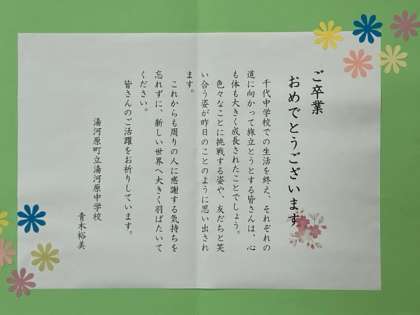 ご卒業
おめでとうございます
千代中学校での生活を終え、それぞれの
道に向かって旅立とうとする皆さんは、心
も体も大きく成長されたことでしょう。
色々なことに挑戦する姿や、友だちと笑
い合う姿が昨日のことのように思い出され
ます。
これからも周りの人に感謝する気持ちを
忘れずに、新しい世界へ大きく羽ばたいて
ください。
皆さんのご活躍をお祈りしています。
湯河原町立湯河原中学校
青木裕美